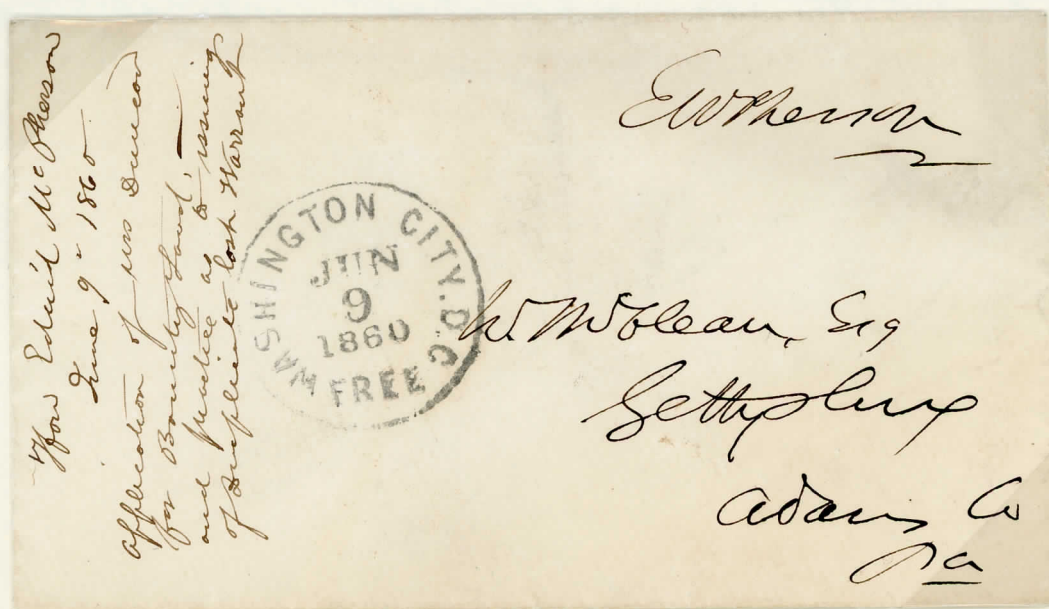 E McPherson
Hon Edw'd McPherson
June 9" 1860
application of Mrs Duncan
for Bounty Land, –
and practice as to issuing
of duplicate lost Warrant
WASHINGTON CITY. D.C.
JUN
9
1860
FREE
W. McClean, Esq
Gettysburg
Adams Co
Pa